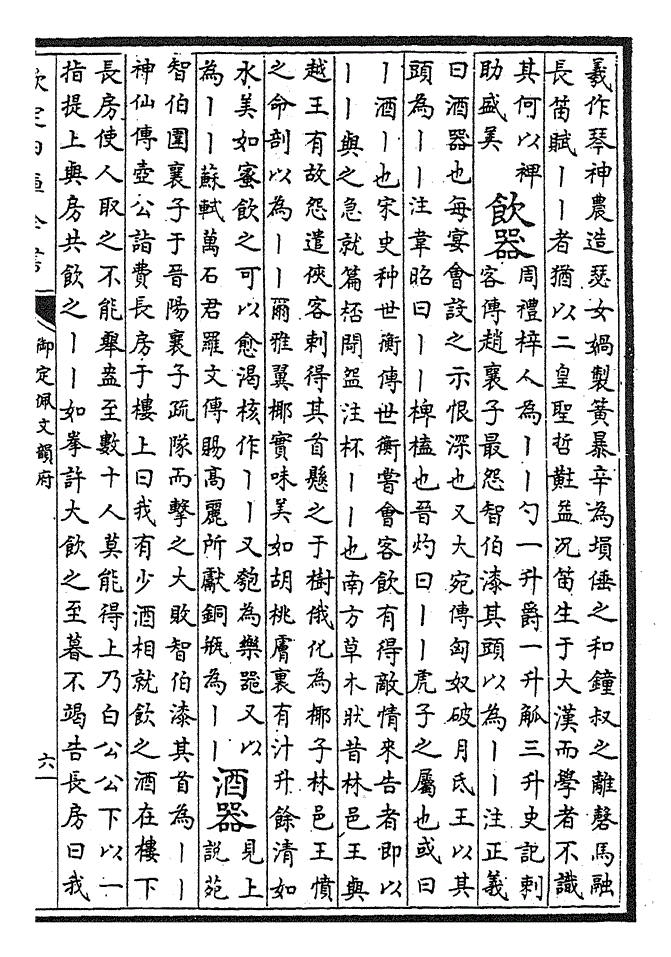 羲作琴神農造瑟女媧製簧暴辛為塤倕之和鐘叔之離磬馬融
長笛賦丨丨者猶以二皇聖哲黈益况笛生于大漢而學者不識
其何以裨
助盛美
飲器
周禮梓人為丨丨勺一升爵一升觚三升史記刺
客傳趙襄子最怨智伯漆其頭以為丨丨注正義
曰酒器也每宴會設之示恨深也又大宛傳匈奴破月氏王以其
頭為丨丨注韋昭曰丨丨椑榼也晉灼曰丨丨虎子之屬也或曰
丨酒丨也宋史种世衡傳世衡嘗會客飲有得敵情來告者即以
丨丨與之急就篇桮閜盌注杯丨丨也南方草木狀昔林邑王與
越王有故怨遣俠客刺得其首懸之于樹俄化為椰子林邑王憤
之命剖以為丨丨爾雅翼椰實味美如胡桃膚裏有汁升餘清如
水美如蜜飲之可以愈渴核作丨丨又匏為樂器又以
為丨丨蘇軾萬石君羅文傳賜髙麗所獻銅瓶為丨丨
酒器
見上
說苑
智伯圍襄子于晉陽襄子疏隊而擊之大敗智伯漆其首為丨丨
神仙傳壺公詣費長房于樓上曰我有少酒相就飲之酒在樓下
長房使人取之不能舉盎至數十人莫能得上乃白公公下以一
指提上與房共飲之丨丨如拳許大飲之至暮不竭告長房曰我
欽定四庫全書
御定佩文韻府
六